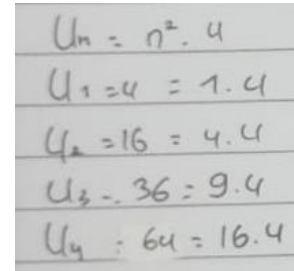 Un = n². 4
U1 = 4 = 1.4
U2 = 16 = 4.4
U3 = 36 = 9.4
U4 = 64 = 16.4